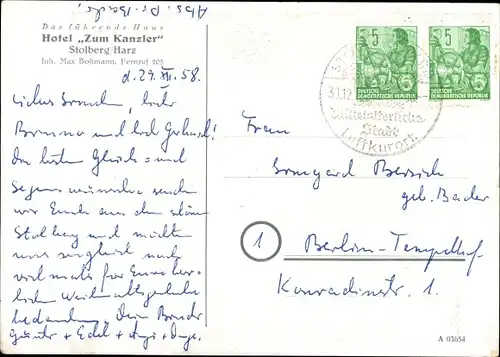 Abs. Dr. Bader,
Das führende Haus
Hotel „Zum Kanzler"
Stolberg/Harz
Inh. Max Boßmann, Fernruf 205
d. 29. XII. 58.
Liebes
und Gerhard!
Die besten Glück= und
Segenswünsche senden
wir Euch aus dem schönen
Stolberg und möchten
uns zugleich noch
vielmals für Eure herz-
lichen Weihnachtsgeschenke
bedanken. Dein Bruder
Günter + Edel +
5
DEUTSCHE
DEMOKRATISCHE REPUBLIK
5
DEUTSCHE
DEMOKRATISCHE REPUBLIK
31.12
Mittelalterliche
Stadt
Luftkurort
Frau
Irmgard
geb. Bader
1
Berlin-Tempelhof
Konradinstr. 1.
A 03654